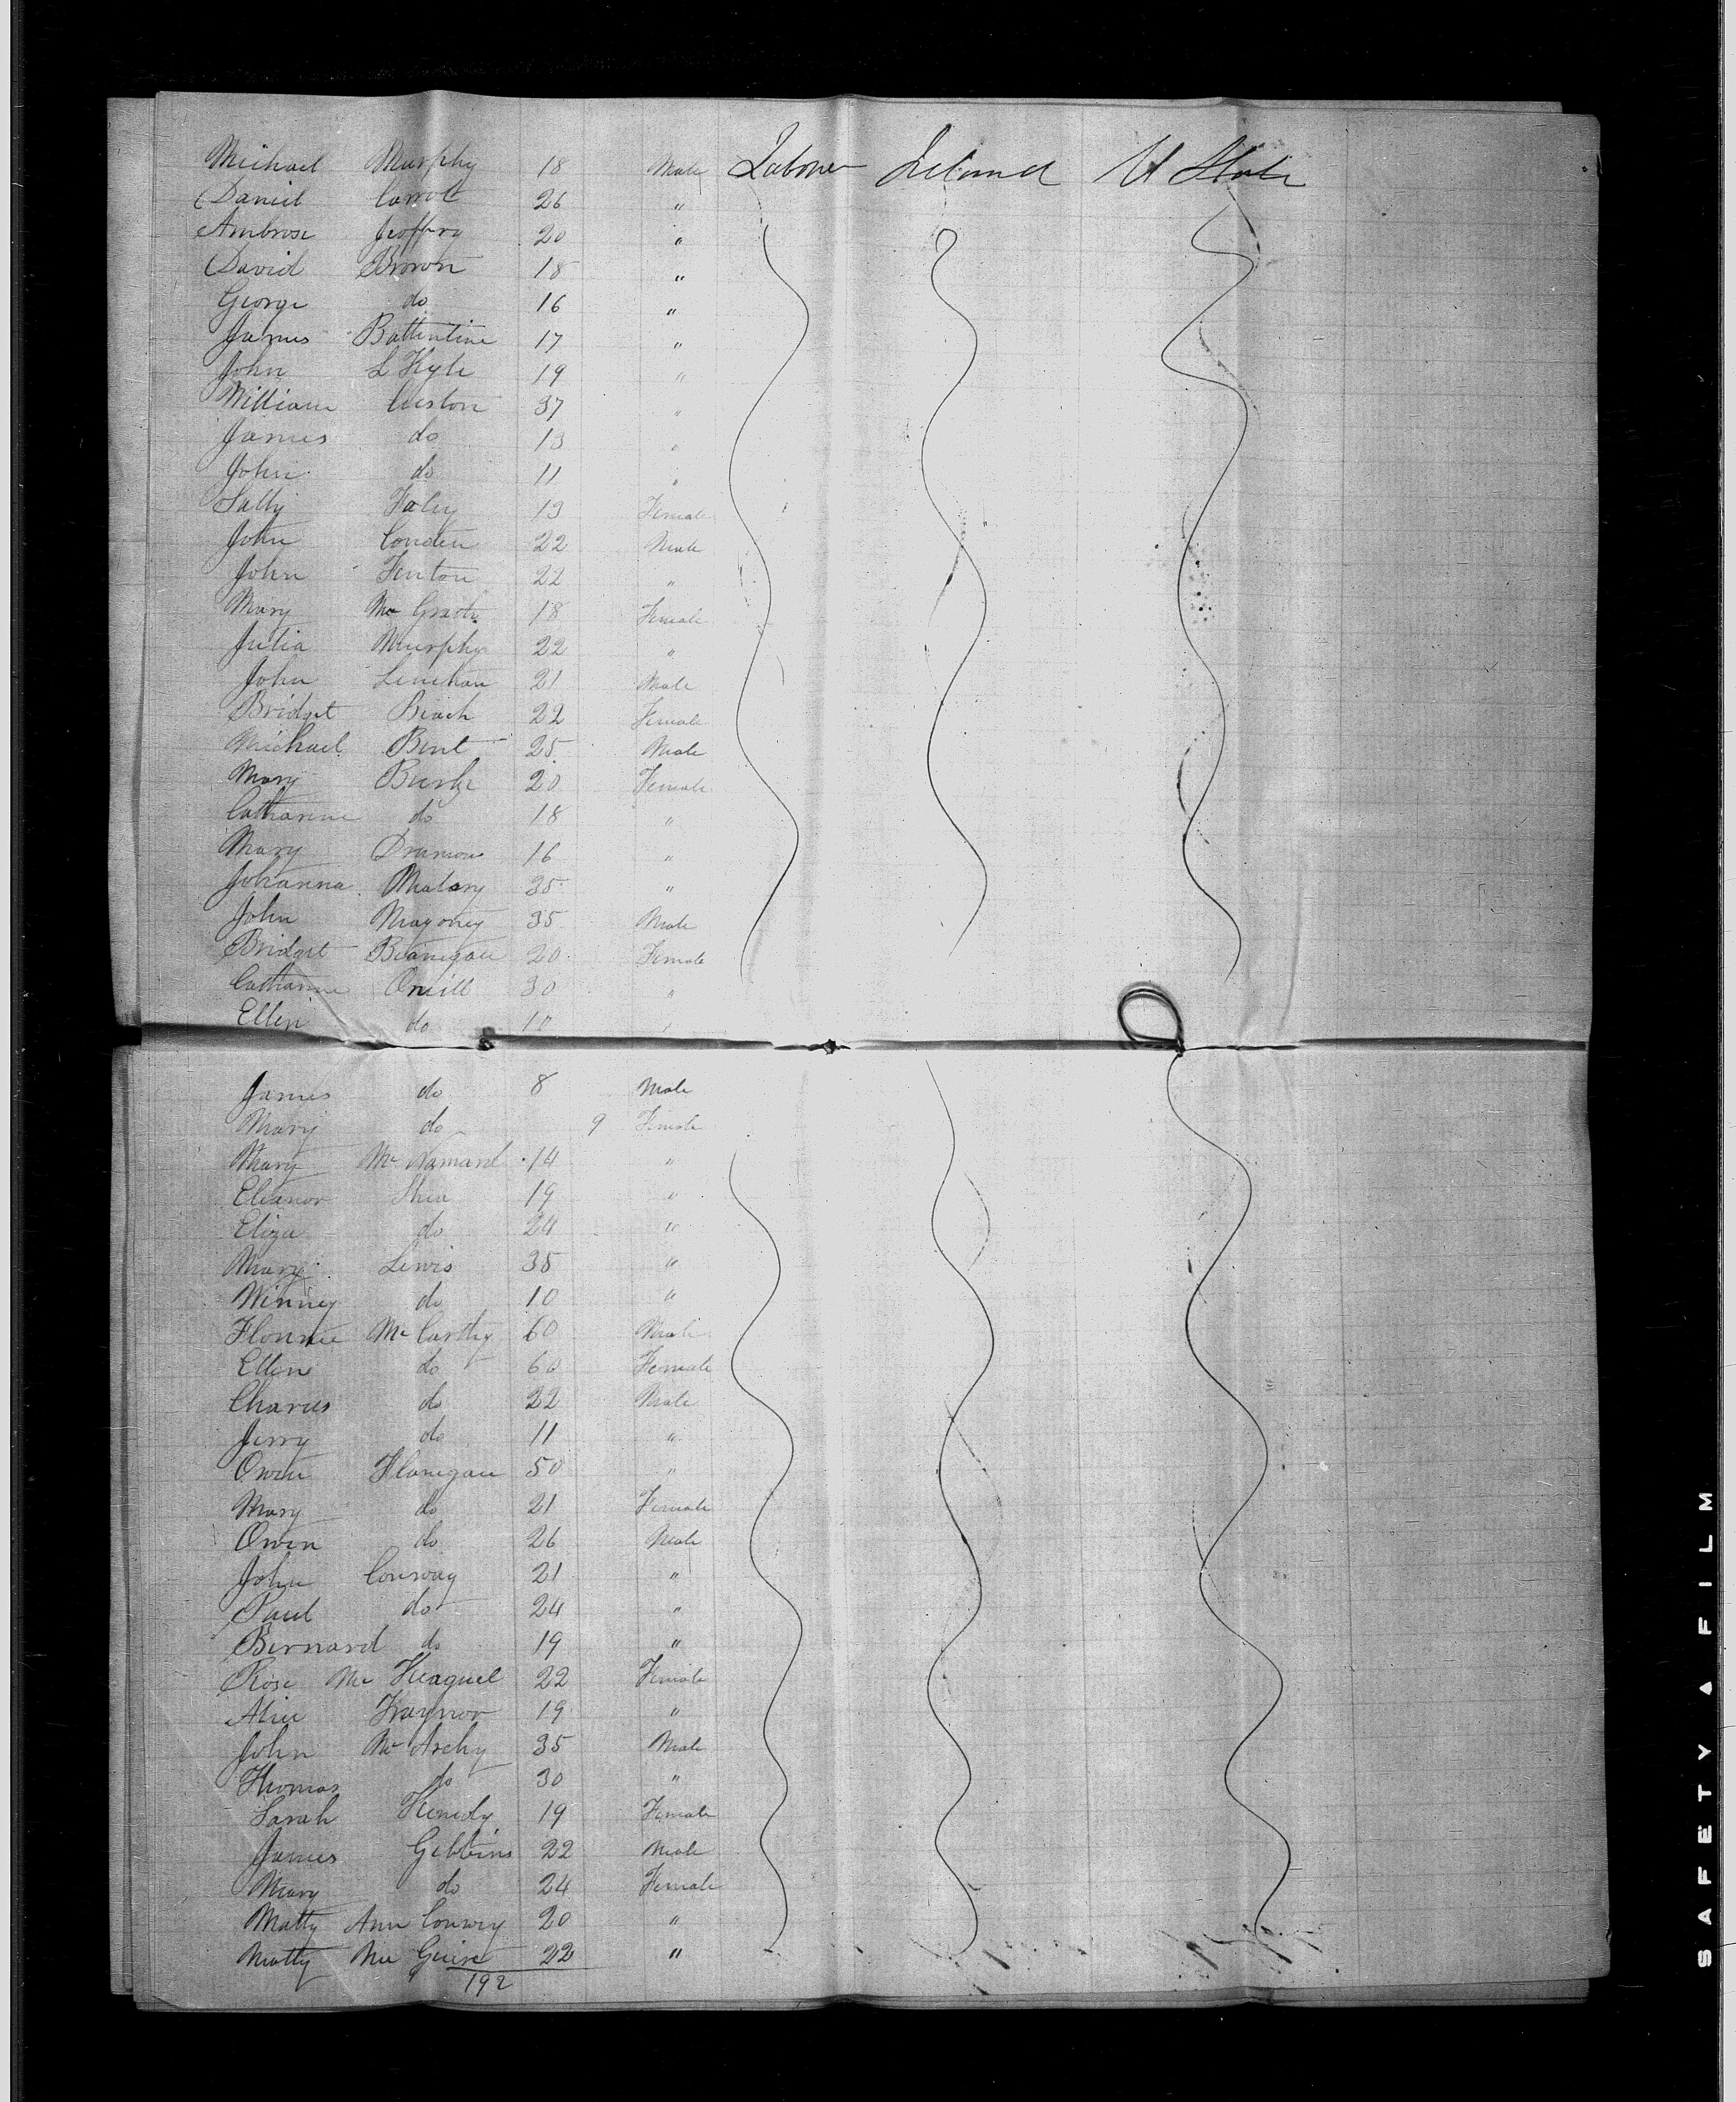 Michael Murphy 18 Male Labourer Ireland U State
Daniel Carrol 26 "
Ambrose Jeoffry 20 "
David Brown 18 "
George do 16 "
James Battentine 17 "
John L Kyle 19 "
William Custon 37 "
James do 13 "
John do 11 "
Sally Foley 13 Female
John Conden 22 Male
John Fenton 22 "
Mary Mc Grath 18 Female
Julia Murphy 22 "
John Linehan 21 Male
Bridget Beach 22 Female
Michael Bent 25 Male
Mary Burke 20 Female
Catharine do 18 "
Mary 16 "
Johanna Malony 35 "
John Magoney 35 Male
Bridget Branigan 20 Female
Catharine Oneill 30 "
Ellen do "
James do 8 Male
Mary do 9 Female
Mary Mc Namard 14 "
Eleanor Shea 19 "
Eliza do 24 "
Mary Lewis 35 "
Winney do 10 "
Flonnie Mc Carthy 60 Male
Ellen do 60 Female
Charles do 22 Male
Jerry do 11 "
Owen Flanigan 50 "
Mary do 21 Female
Owen do 26 Male
John Conway 21 "
Paul do 24 "
Bernard do 19 "
Rose Mc 22 Female
Alice Traynor 19 "
John Mc Archy 35 Male
Thomas do 30 "
Sarah Kenedy 19 Female
James Gibbins 22 Male
Mary do 24 Female
Matty Ann Conwey 20 "
Matty Mc Guire 22 "
192
SAFETY A FILM